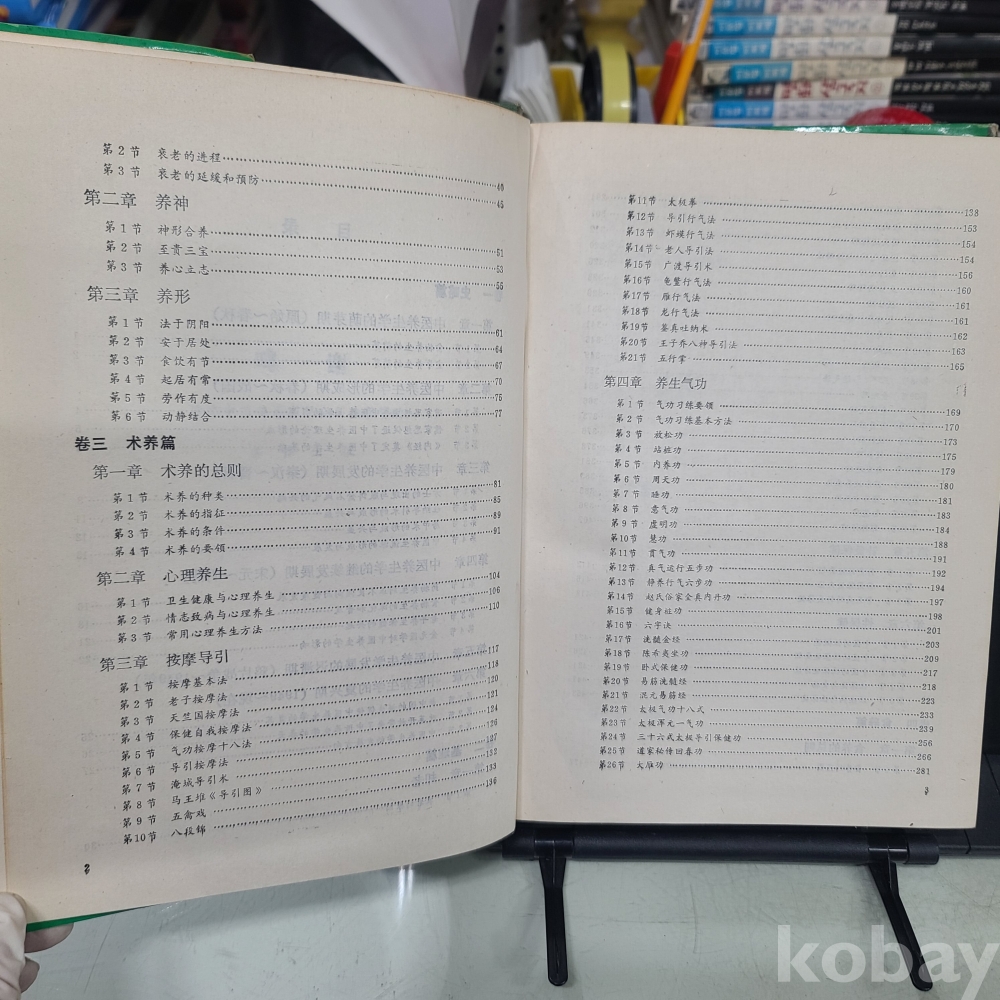 第2节 衰老的进程……40
第3节 衰老的延缓和预防……45
第二章 养神
第1节 神形合养……51
第2节 至贵三宝……53
第3节 养心立志……55
第三章 养形
第1节 法于阴阳……61
第2节 安于居处……64
第3节 食饮有节……67
第4节 起居有常……70
第5节 劳作有度……75
第6节 动静结合……77
卷三 术养篇
第一章 术养的总则
第1节 术养的种类……81
第2节 术养的指征……85
第3节 术养的条件……89
第4节 术养的要领……91
第二章 心理养生
第1节 卫生健康与心理养生……104
第2节 情志致病与心理养生……106
第3节 常用心理养生方法……110
第三章 按摩导引
第1节 按摩基本法……117
第2节 老子按摩法……118
第3节 天竺国按摩法……120
第4节 保健自我按摩法……121
第5节 气功按摩十八法……124
第6节 导引按摩法……126
第7节 淹城导引术……127
第8节 马王堆《导引图》……132
第9节 五禽戏……133
第10节 八段锦……136
2
第11节 太极拳……138
第12节 导引行气法……153
第13节 虾蟆行气法……154
第14节 老人导引法……154
第15节 广渡导引术……156
第16节 龟鳖行气法……160
第17节 雁行气法……161
第18节 龙行气法……161
第19节 鉴真吐纳术……162
第20节 王子乔八神导引法……163
第21节 五行掌……165
第四章 养生气功
第1节 气功习练要领……169
第2节 气功习练基本方法……170
第3节 放松功……173
第4节 站桩功……175
第5节 内养功……179
第6节 周天功……180
第7节 睡功……181
第8节 意气功……183
第9节 虚明功……184
第10节 慧功……188
第11节 贯气功……191
第12节 真气运行五步功……192
第13节 锌养行气六步功……194
第14节 赵氏俗家全真内丹功……197
第15节 健身桩功……198
第16节 六字诀……201
第17节 洗髓金经……203
第18节 陈希夷坐功……209
第19节 卧式保健功……217
第20节 易筋洗髓经……218
第21节 混元易筋经……223
第22节 太极气功十八式……233
第23节 太极浑元一气功……239
第24节 三十六式太极导引保健功……256
第25节 道家秘传回春功……266
第26节 大雁功……281
3
kobay